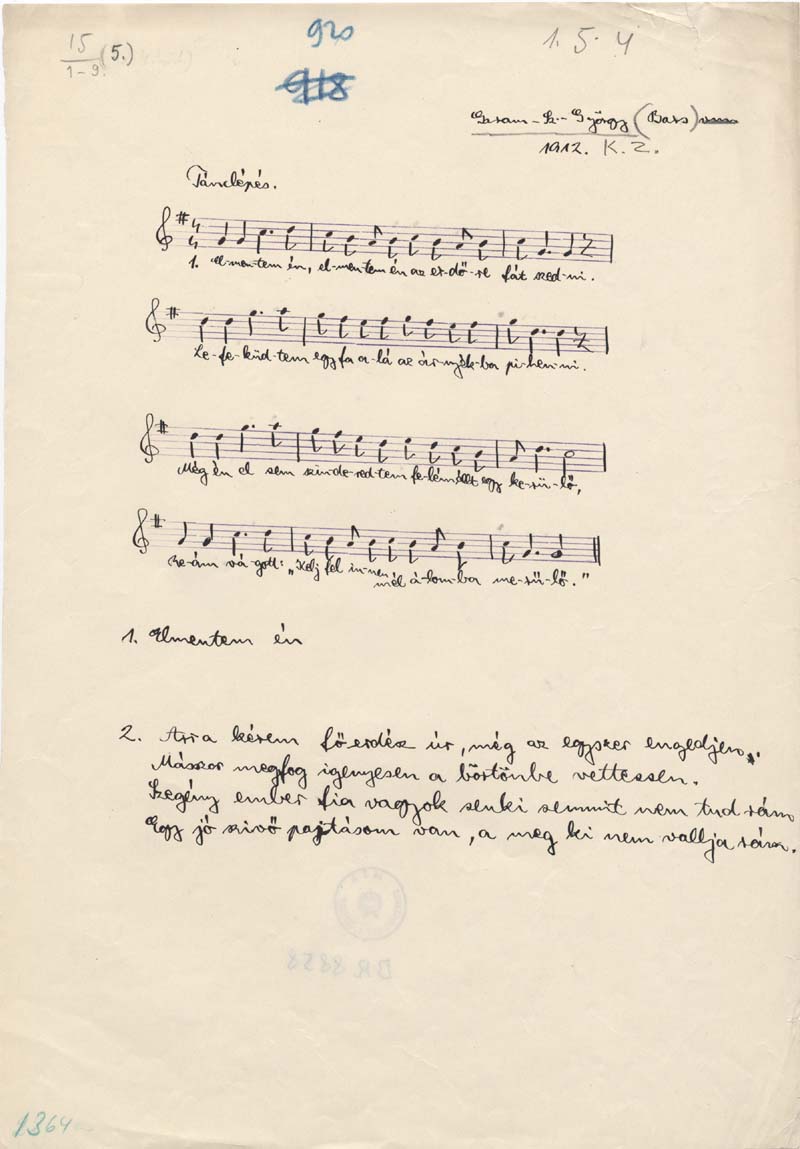 15
1-9. (5.)
920
918
1. 5. 4
Garam-Sz.-György (Bars)
1912. K. Z.
Tánclépés.
1. El-men-tem én, el-men-tem én az er-dő-re fát szed-ni.
Le-fe-küd-tem egy fa a-lá az ár-nyék-ba pi-hen-ni.
Még én el sem szin-de-red-tem fe-lém állt egy ke-rü-lő,
Re-ám vá-gott: „Kelj fel in-nen mél á-lom-ba me-rü-lő."
1. Elmentem én
2. Arra kérem főerdész úr, még az egyszer engedjen,
Mászor megfog igenyesen a börtönbe vettessen.
Szegény ember fia vagyok senki semmit nem tud rám
Egy jó szivő pajtásom van, a meg ki nem vallja rám.
BR 8858
1364